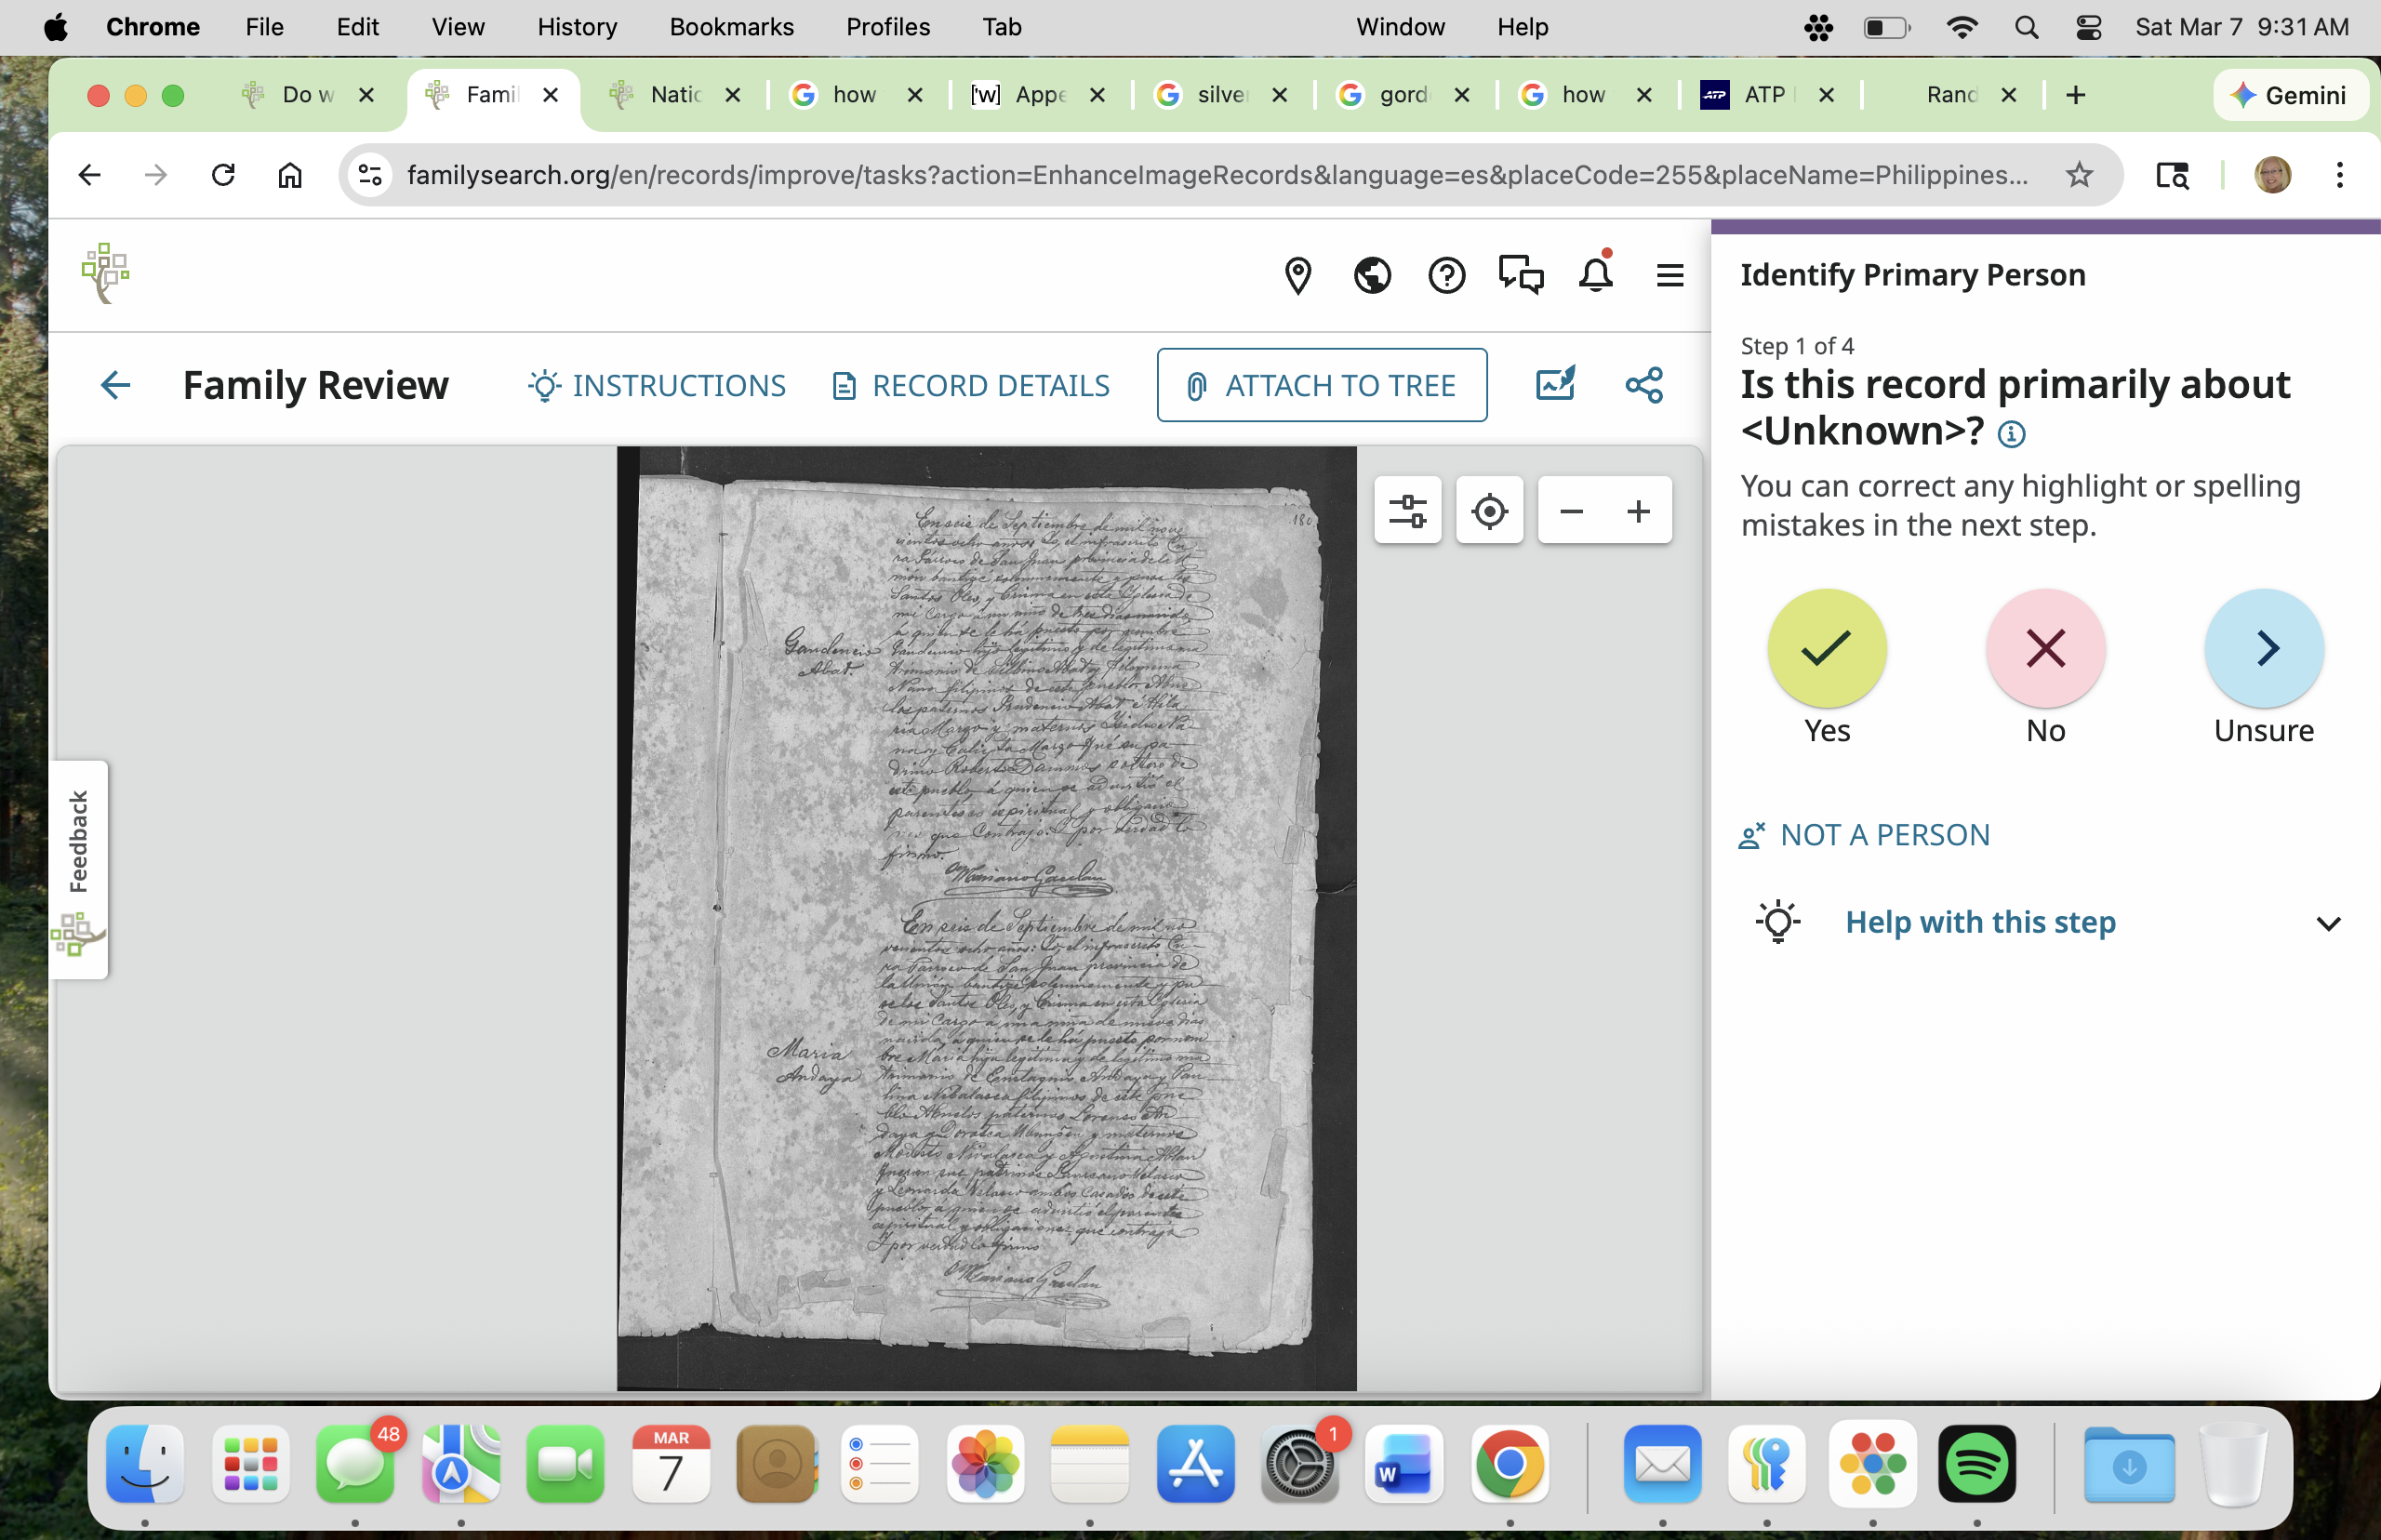 Chrome File Edit View History Bookmarks Profiles Tab Window Help Sat Mar 7 9:31 AM
Do w Famil Natio how ['w] Appe silve gord how ATP ATP Rand Gemini
familysearch.org/en/records/improve/tasks?action=EnhanceImageRecords&language=es&placeCode=255&placeName=Philippines...
Family Review INSTRUCTIONS RECORD DETAILS ATTACH TO TREE
Feedback
180
En seis de Septiembre de mil nove
cientos ocho años Yo, el infrascrito Cu
ra Párroco de San Juan provincia de la U
nión bautizé solemnemente y puse los
Santos Oleo, y Crisma en esta Iglesia de
mi Cargo á un niño de tres dias nacido,
á quien se le há puesto por nombre
Gaudencio
Abat.
Gaudencio hijo legítimo y de legítimo ma
trimonio de Albino Abat y Filomena
Nano filipinos de este pueblo Abue
los paternos Prudencio Abat é Hila
ria Margo y maternos Isidro Na
no y Margo Fué su pa
drino Roberto soltero de
este pueblo, á quien se advirtió el
parentesco espiritual y obligacio
nes que contrajo. Y por verdad lo
firmo.
Mariano Gaerlan
En seis de Septiembre de mil no
vecientos ocho años: Yo, el infrascrito Cu-
ra Párroco de San Juan provincia de
la Unión, bautizé solemnemente y pu
se los Santos Oleo, y Crisma en esta Iglesia
de mi Cargo a una niña de nueve dias
nacida, a quien se le há puesto por nom
Maria
Andaya
bre Maria hija legítima y de legítimo ma
trimonio de Andaya y Pau
lina filipinos de este pue
blo Abuelos paternos Lorenzo An
daya y maternos
Modesto y
Fueron sus padrinos Velasco
y Leonarda Velasco ambos casados de este
pueblo, a quienes advirtió el parentesco
espiritual y obligaciones que contrajo
Y por verdad lo firmo
Mariano Gaerlan
Identify Primary Person
Step 1 of 4
Is this record primarily about
<Unknown>?
You can correct any highlight or spelling
mistakes in the next step.
Yes No Unsure
NOT A PERSON
Help with this step
48
MAR
7
1
W